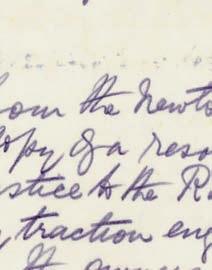 from the Newto
copy of a reso
stice to the R
traction eng